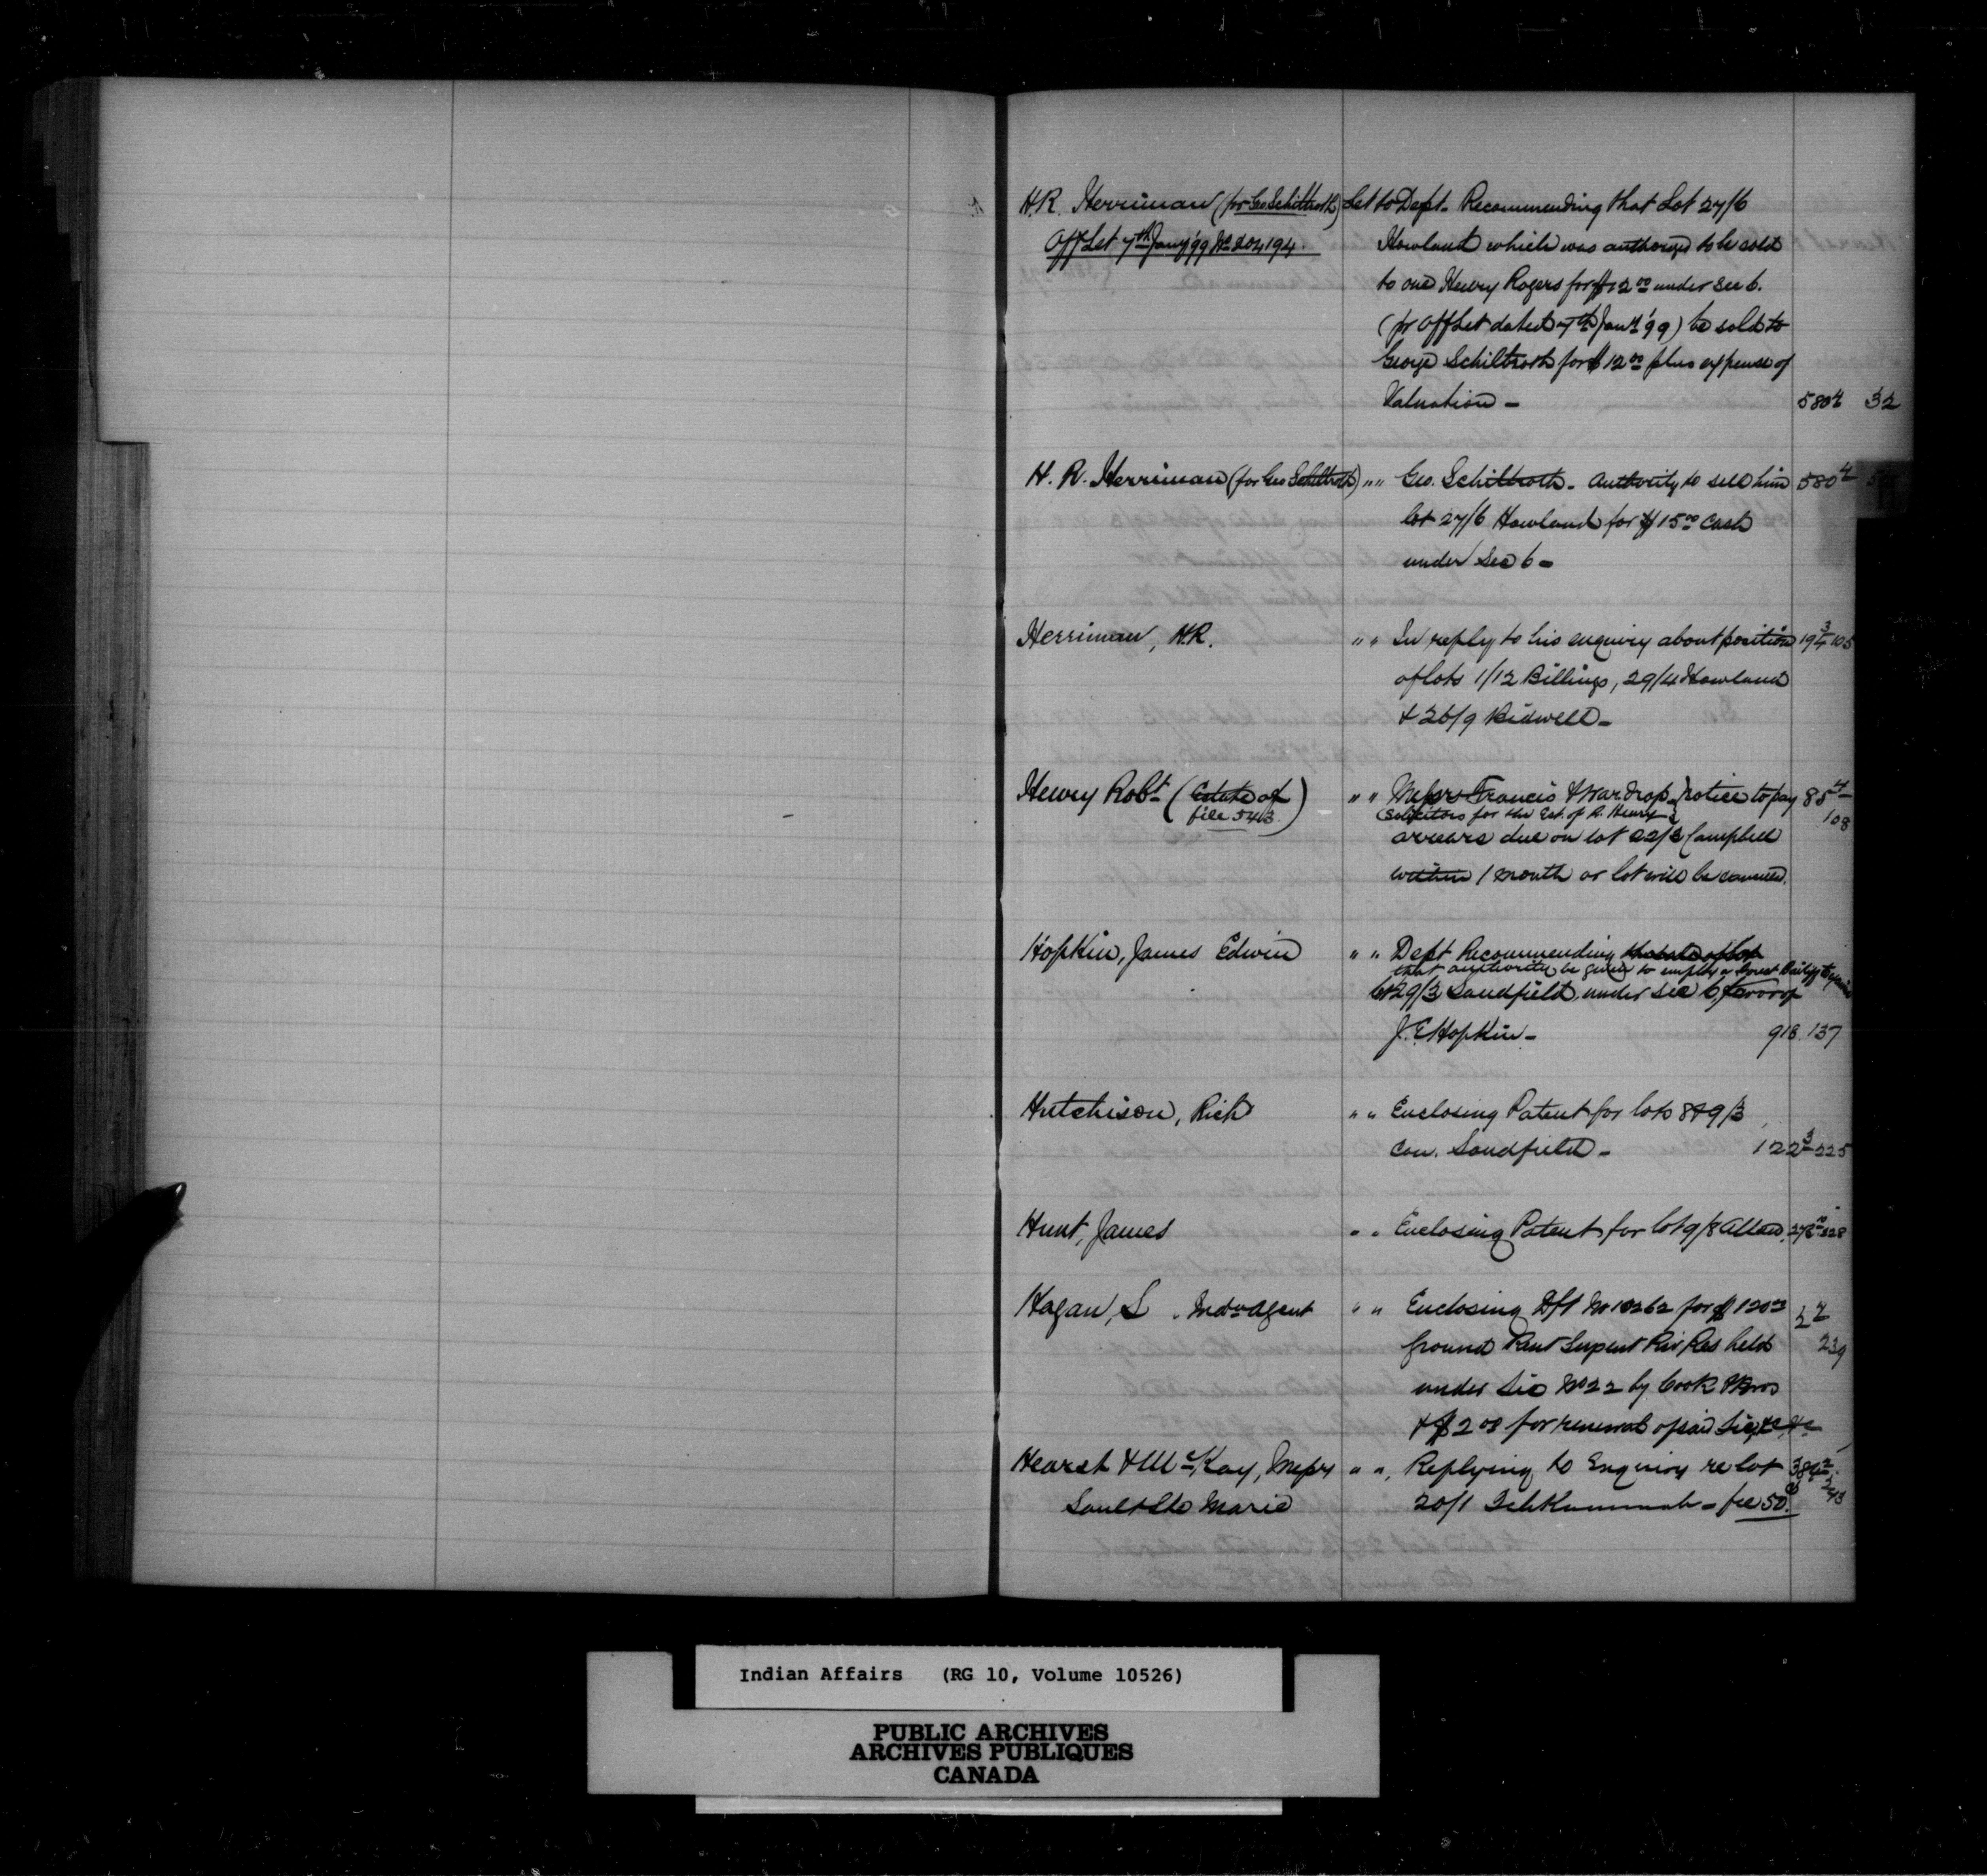 H.R. Herriman (for Geo Schiltroth) Let to Dept. Recommending that Lot 27/6
Off Let 7th Jany '99 No 204194. Howland which was authorized to be sold
to one Henry Rogers for $12 00 under Sec 6.
(pr Off Let dated 7th Jany '99) be sold to
George Schiltroth for $12 00 plus expense of
Valuation - 580 4 32
H. R. Herriman (for Geo Schiltroth) " " Geo. Schiltroth - Authority to sell him 580 4
lot 27/6 Howland for $15 00 Cash
under Sec 6 -
Herriman, H.R. " " In reply to his enquiry about position 19 3/4 105
of lots 1/12 Billings, 29/4 Howland
& 26/9 Bidwell -
Henry Robt (Estate of " " Messrs Francis & Wardrop notice to pay 85 4
file 543) Solicitors for the Est. of R. Henry 108
arrears due on lot 22/3 Campbell
within 1 month or lot will be cancelled.
Hopkin, James Edwin " " Dept Recommending
that authority be given to employ a Court Bailiff to
lot 29/3 Sandfield, under Sec 6 favor of
J. E Hopkin - 918 137
Hutchison, Rich " " Enclosing Patent for lots 8 & 9/3
Con. Sandfield - 122 3 225
Hunt, James " " Enclosing Patent for lot 9/8 Allan. 228
Hagan, S. Indn Agent " " Enclosing Dft No 10262 for $120 00
Ground Rent Serpent Riv Res held 239
under Lic No 22 by Cook & Bros
& $2 00 for renewal of said Lic, &c &c
Hearst & McKay, Messrs " " Replying to Enquiry re lot
Sault Ste Marie 20/1 Tehkummah - fee 50. 243
Indian Affairs (RG 10, Volume 10526)
PUBLIC ARCHIVES
ARCHIVES PUBLIQUES
CANADA